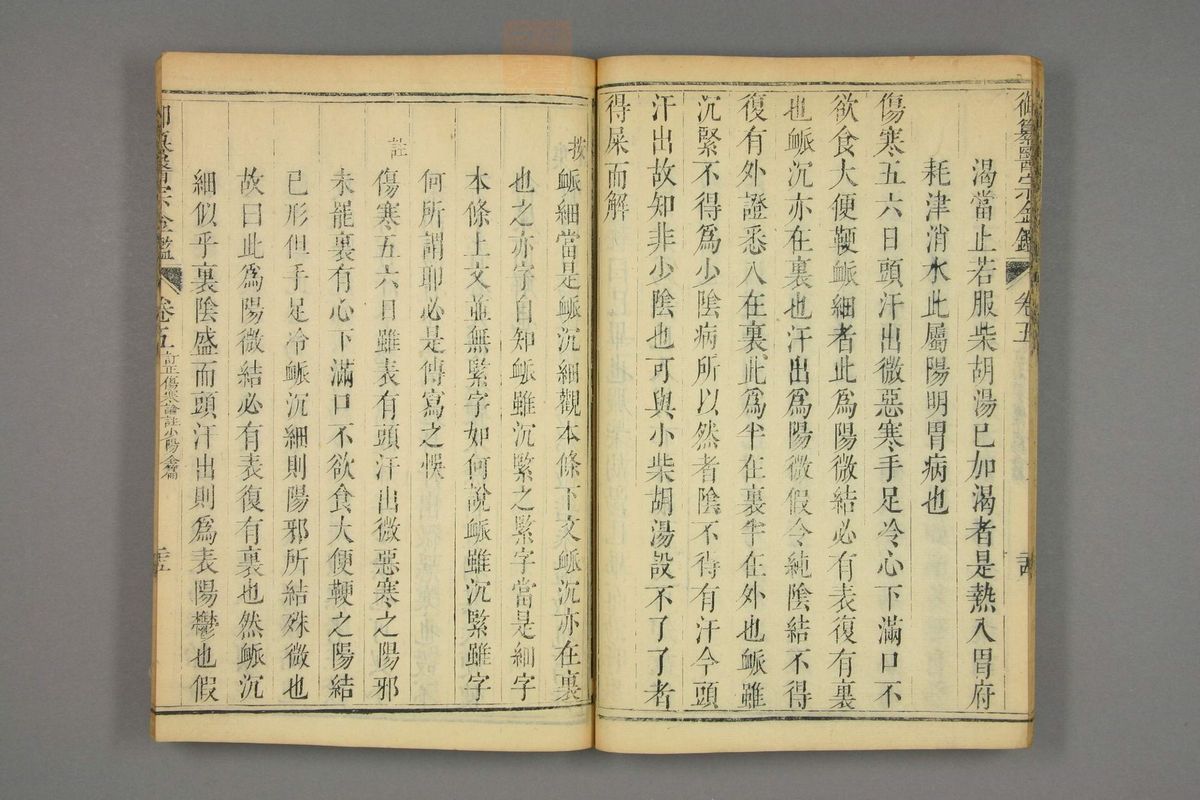 御纂醫宗金鑑 卷五
渴當止若服柴胡湯已加渴者是熱入胃府
耗津消水此屬陽明胃病也
傷寒五六日頭汗出微惡寒手足冷心下滿口不
欲食大便鞕脈細者此爲陽微結必有表復有裏
也脈沉亦在裏也汗出爲陽微假令純陰結不得
復有外證悉入在裏此爲半在裏半在外也脈雖
沉緊不得爲少陰病所以然者陰不得有汗今頭
汗出故知非少陰也可與小柴胡湯設不了了者
得屎而解
按脈細當是脈沉細觀本條下文脈沉亦在裏
也之亦字自知脈雖沉緊之緊字當是細字
本條上文並無緊字如何說脈雖沉緊雖字
何所謂耶必是傳寫之悞
註傷寒五六日雖表有頭汗出微惡寒之陽邪
未罷裏有心下滿口不欲食大便鞕之陽結
已形但手足冷脈沉細則陽邪所結殊微也
故曰此爲陽微結必有表復有裏也然脈沉
細似乎裏陰盛而頭汗出則爲表陽鬱也假
御纂醫宗金鑑 卷五 訂正傷寒論註少陽全篇